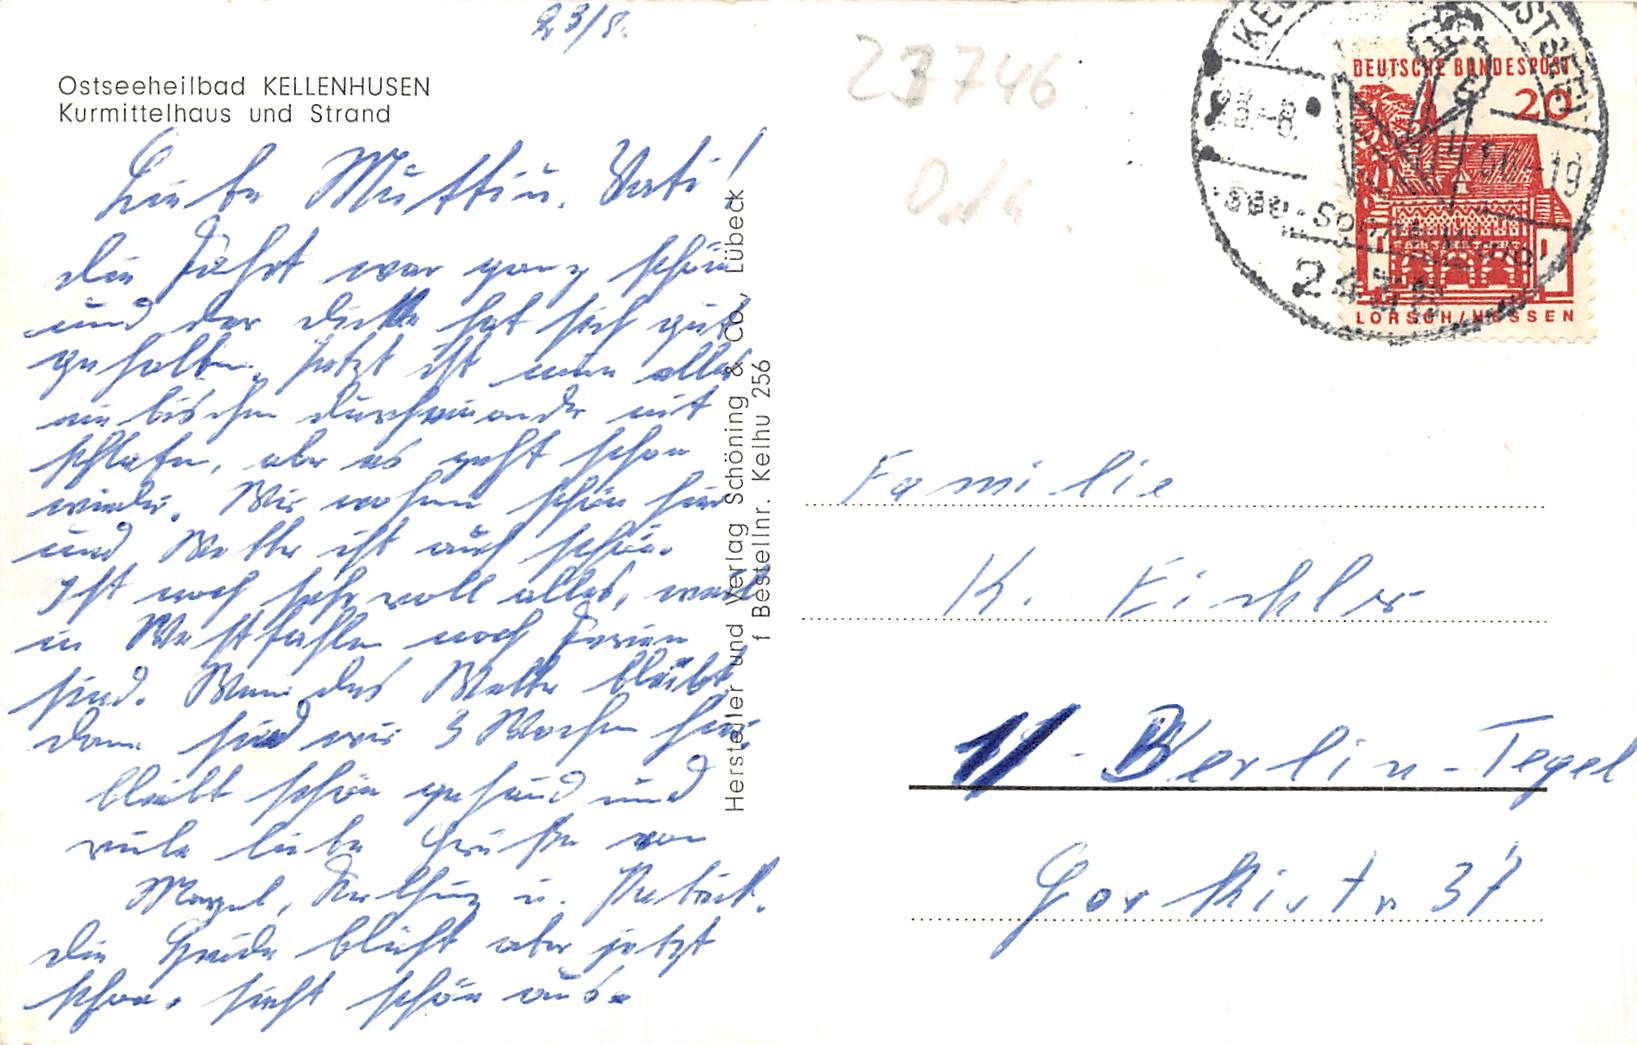 23/8.
Ostseeheilbad KELLENHUSEN
Kurmittelhaus und Strand
Liebe Mutti u. Vati!
die Fahrt war ganz schön
und der dicke hat sich gut
gehalten. Jetzt ist nun alles
ein bischen durcheinander mit
schlafen, aber es geht schon
wieder. Wir wohnen schön hier
und Wetter ist auch schön.
Ist noch sehr voll alles, weil
in Westfahlen noch Ferien
sind. Wenn das Wetter bleibt,
dann sind wir 3 Wochen hier,
bleibt schön gesund und
viele liebe Grüße von
u.
die Heide blüht aber jetzt
schon. sieht schön aus.
Hersteller und Verlag Schöning & Co., Lübeck
f Bestellnr. Kelhu 256
23746
DEUTSCHE BUNDESPOST
20
LORSCH/HESSEN
Familie
K. Eichler
1/-Berlin-Tegel
Gorkistr 37